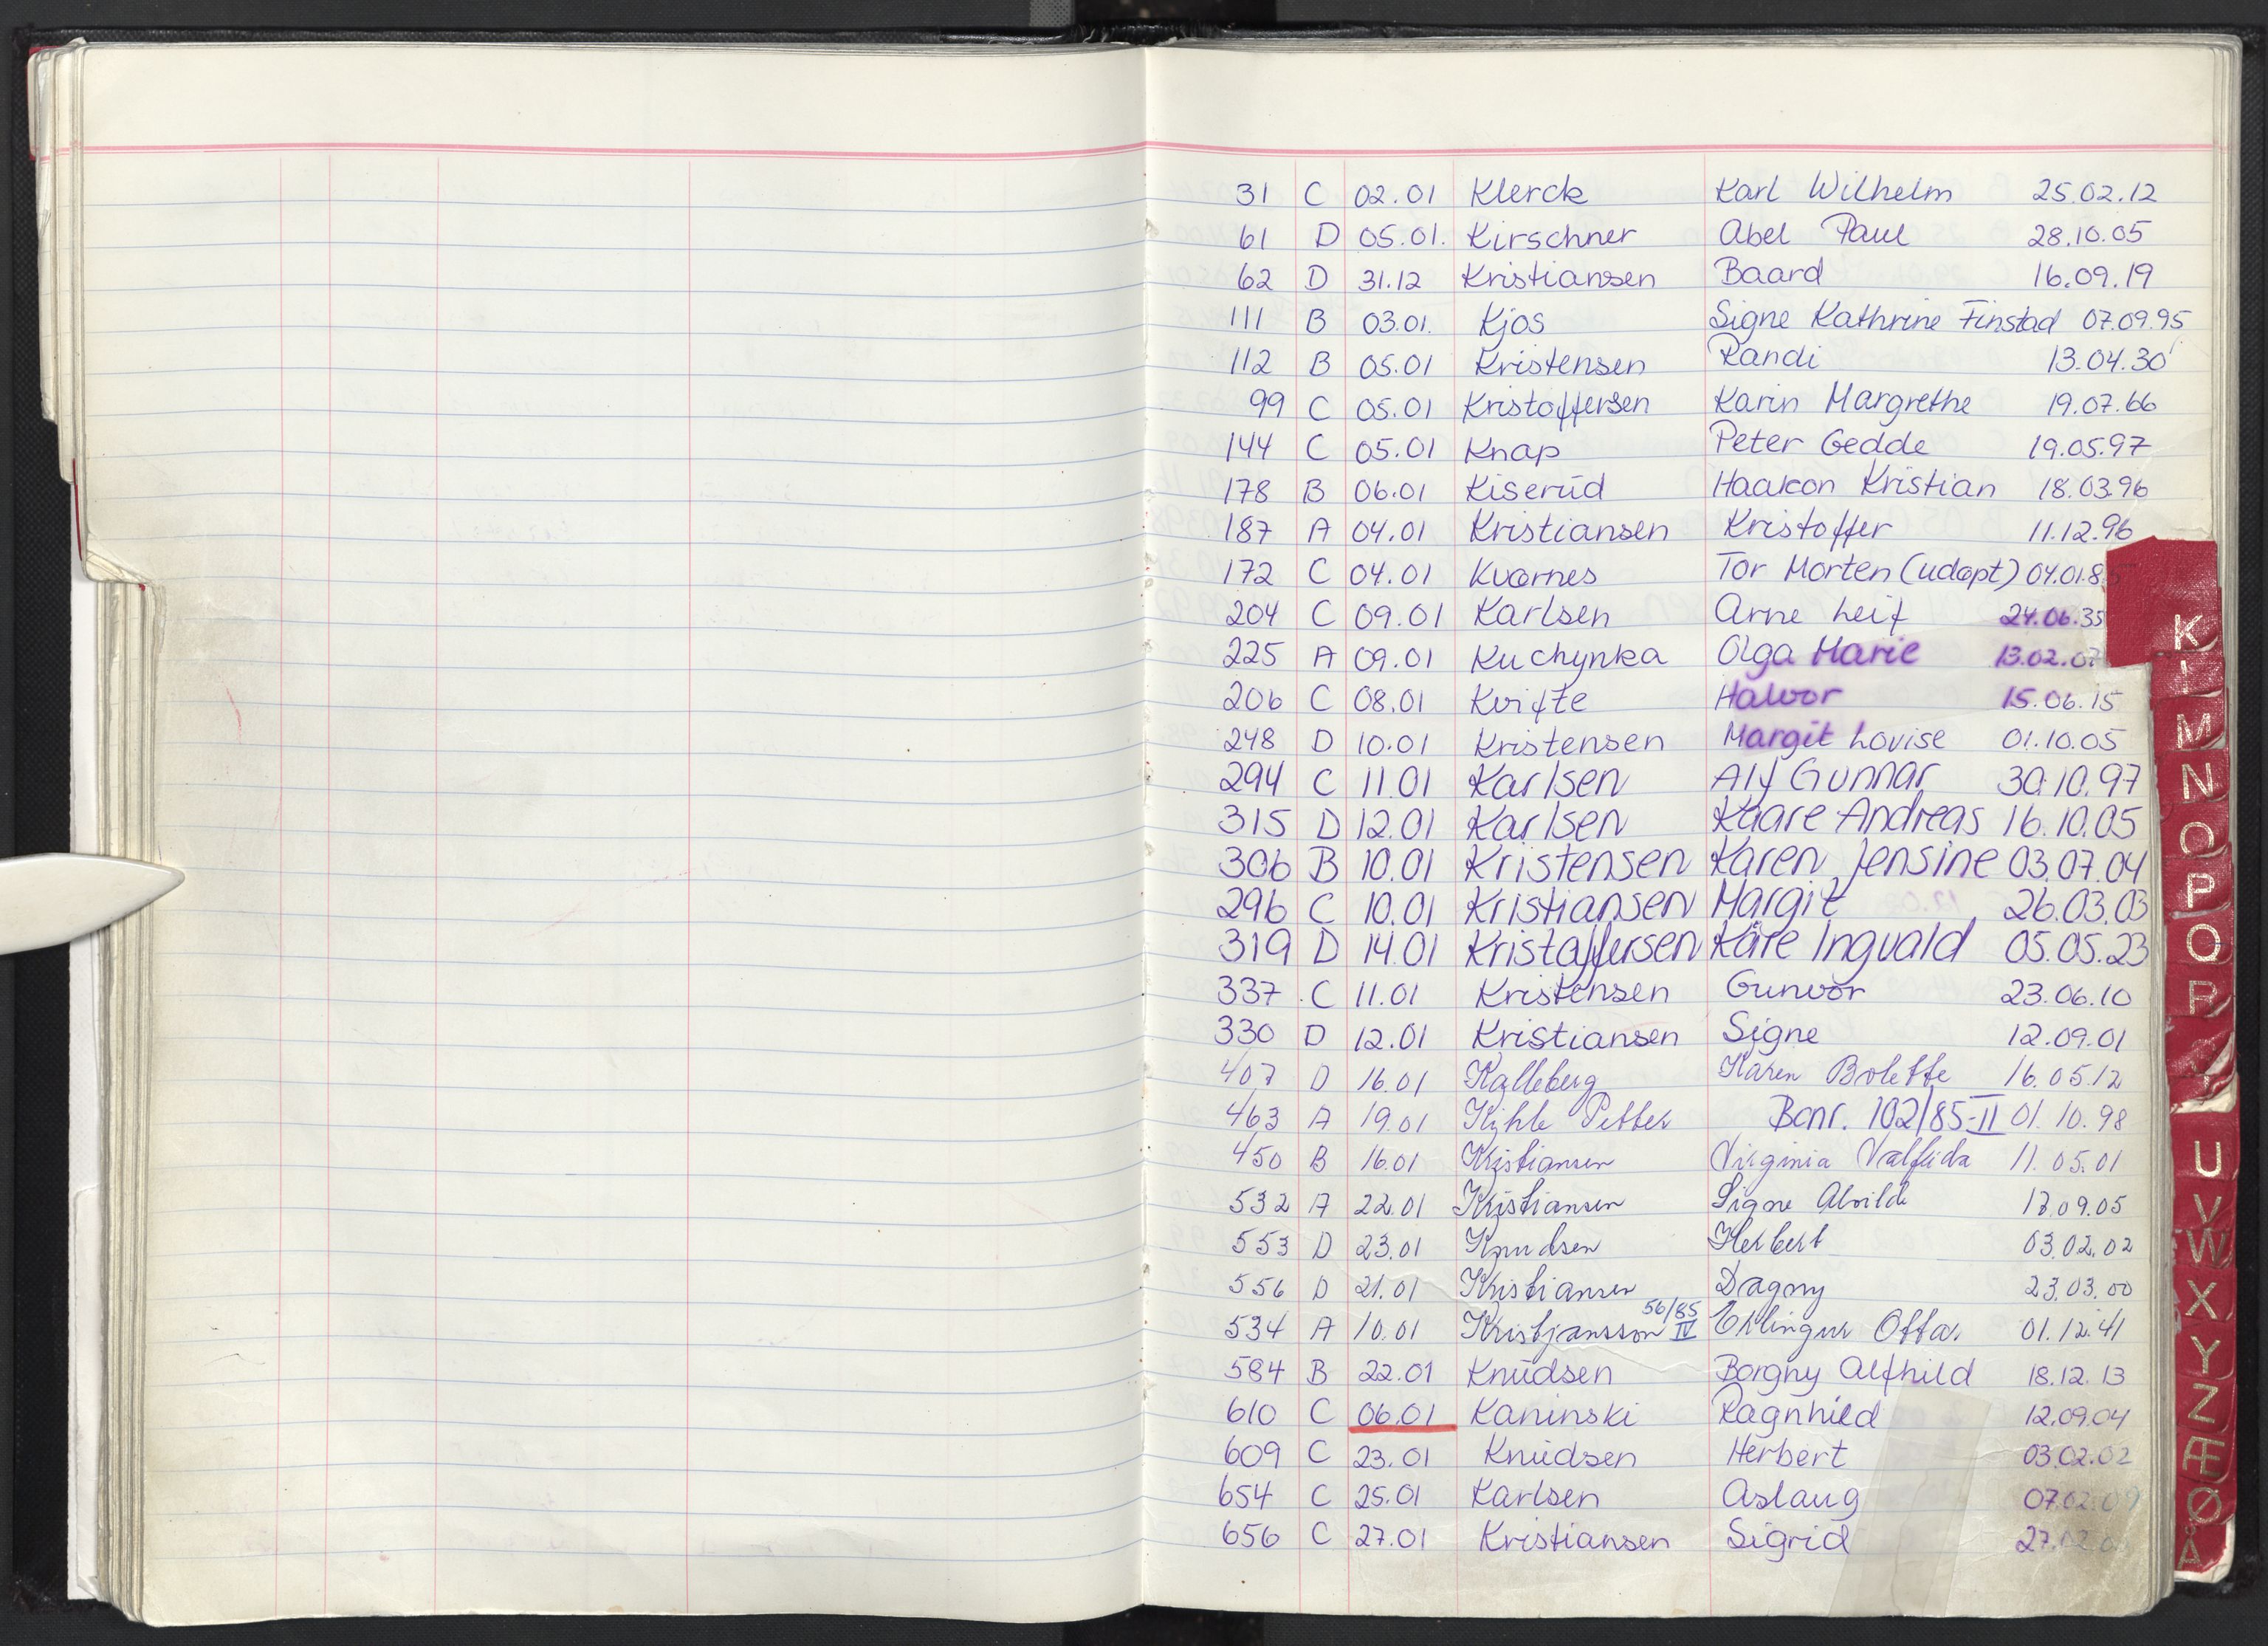 31 C 02.01 Klerck Karl Wilhelm 25.02.12
61 D 05.01. Kirschner Abel Paul 28.10.05
62 D 31.12 Kristiansen Baard 16.09.19
111 B 03.01. Kjos Signe Kathrine Finstad 07.09.95
112 B 05.01 Kristensen Randi 13.04.30
99 C 05.01 Kristoffersen Karin Margrethe 19.07.66
144 C 05.01 Knap Peter Gedde 19.05.97
178 B 06.01 Kiserud Haakon Kristian 18.03.96
187 A 04.01 Kristiansen Kristoffer 11.12.96
172 C 04.01 Kvarnes Tor Morten (udøpt) 04.01.85
204 C 09.01 Karlsen Arne Leif 24.06.35
225 A 09.01 Kuchynka Olga Marie 13.02.07
206 C 08.01 Kvifte Halvor 15.06.15
248 D 10.01 Kristensen Margit Lovise 01.10.05
294 C 11.01 Karlsen Alf Gunnar 30.10.97
315 D 12.01 Karlsen Kaare Andreas 16.10.05
306 B 10.01 Kristensen Karen Jensine 03.07.04
296 C 10.01 Kristiansen Margit 26.03.03
319 D 14.01 Kristoffersen Kåre Ingvald 05.05.23
337 C 11.01 Kristensen Gunvor 23.06.10
330 D 12.01 Kristiansen Signe 12.09.01
407 D 16.01 Kalleberg Karen Bolette 16.05.12
463 A 19.01 Kihle Petter Bcnr. 102/85-II 01.10.98
450 B 16.01 Kristiansen Virginia Valfrida 11.05.01
532 A 22.01 Kristiansen Signe Alvilde 13.09.05
553 D 23.01 Knudsen Herbert 03.02.02
556 D 21.01 Kristiansen Dagny 23.03.00
534 A 10.01 Kristjansson 56/85 IV Erlingur Ottar 01.12.41
584 B 22.01 Knudsen Borgny Alfhild 18.12.13
610 C 06.01 Kaninski Ragnhild 12.09.04
609 C 23.01 Knudsen Herbert 03.02.02
654 C 25.01 Karlsen Aslaug 07.02.09
656 C 27.01 Kristiansen Sigrid
K
M
N
O
P
Q
R
U
V
W
X
Y
Z
Æ
Ø
Å